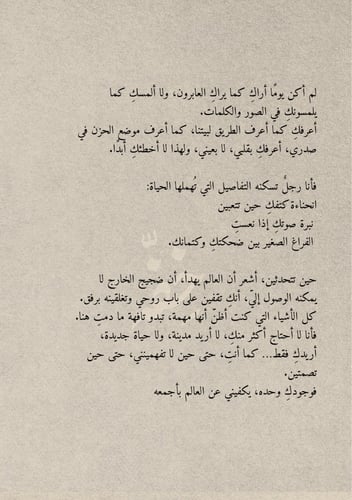 لم أكن يومًا أراكِ كما يراكِ العابرون، ولا ألمسكِ كما
يلمسونكِ في الصور والكلمات.
أعرفكِ كما أعرف الطريق لبيتنا، كما أعرف موضع الحزن في
صدري، أعرفكِ بقلبي، لا بعيني، ولهذا لا أخطئكِ أبدًا.
فأنا رجلٌ تسكنه التفاصيل التي تُهملها الحياة:
انحناءة كتفكِ حين تتعبين
نبرة صوتكِ إذا نعستِ
الفراغ الصغير بين ضحكتكِ وكتمانك.
حين تتحدثين، أشعر أن العالم يهدأ، أن ضجيج الخارج لا
يمكنه الوصول إليّ، أنكِ تقفين على باب روحي وتغلقينه برفق.
كل الأشياء التي كنت أظنّ أنها مهمة، تبدو تافهة ما دمتِ هنا.
فأنا لا أحتاج أكثر منكِ، لا أريد مدينة، ولا حياة جديدة،
أريدكِ فقط... كما أنتِ، حتى حين لا تفهمينني، حتى حين
تصمتين.
فوجودكِ وحده، يكفيني عن العالم بأجمعه